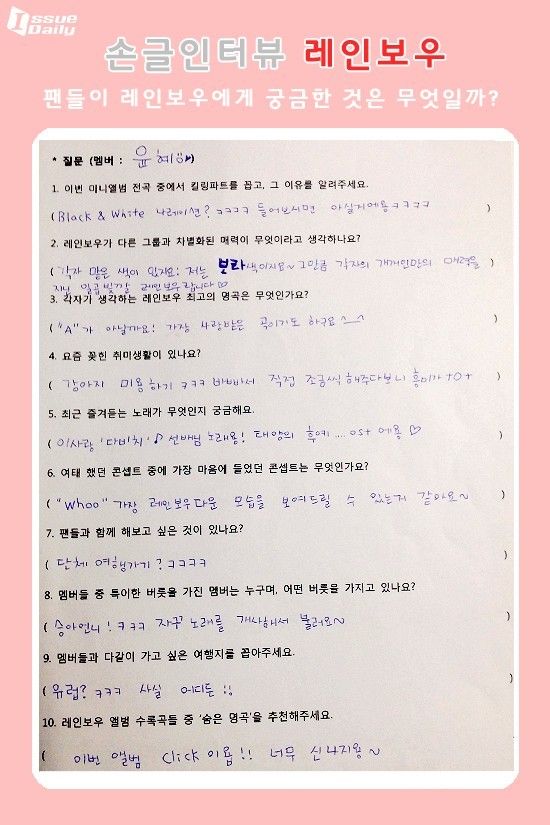 Issue
Daily
손글인터뷰 레인보우
팬들이 레인보우에게 궁금한 것은 무엇일까?
* 질문 (멤버 : 윤혜)
1. 이번 미니앨범 전곡 중에서 킬링파트를 꼽고, 그 이유를 알려주세요.
( Black & White 나레이션? ㅋㅋㅋㅋ 들어보시면 아실거에용 ㅋㅋㅋㅋ )
2. 레인보우가 다른 그룹과 차별화된 매력이 무엇이라고 생각하나요?
( 각자 맡은 색이 있지요! 저는 보라색이지요~ 그만큼 각자의 개개인만의 매력을
지닌 일곱빛깔 레인보우랍니다♡
3. 각자가 생각하는 레인보우 최고의 명곡은 무엇인가요?
( "A"가 아닐까요! 가장 사랑받은 곡이기도 하구요 ^_^ )
4. 요즘 꽂힌 취미생활이 있나요?
( 강아지 미용하기 ㅋㅋㅋ 바빠서 직접 조금씩 해주다보니 흥미가 +0+ )
5. 최근 즐겨듣는 노래가 무엇인지 궁금해요.
( 이사랑 '다비치'♪ 선배님 노래용! 태양의 후예 .... ost 에용 ♡ )
6. 여태 했던 콘셉트 중에 가장 마음에 들었던 콘셉트는 무엇인가요?
( "Whoo" 가장 레인보우다운 모습을 보여드릴 수 있는거 같아요~ )
7. 팬들과 함께 해보고 싶은 것이 있나요?
( 단체 여행가기? ㅋㅋㅋㅋ )
8. 멤버들 중 특이한 버릇을 가진 멤버는 누구며, 어떤 버릇을 가지고 있나요?
( 승아언니! ㅋㅋㅋ 자꾸 노래를 개사해서 불러요~ )
9. 멤버들과 다같이 가고 싶은 여행지를 꼽아주세요.
( 유럽? ㅋㅋㅋ 사실 어디든 !! )
10. 레인보우 앨범 수록곡들 중 '숨은 명곡'을 추천해주세요.
( 이번 앨범 Click 이욥!! 너무 신나지용~ )